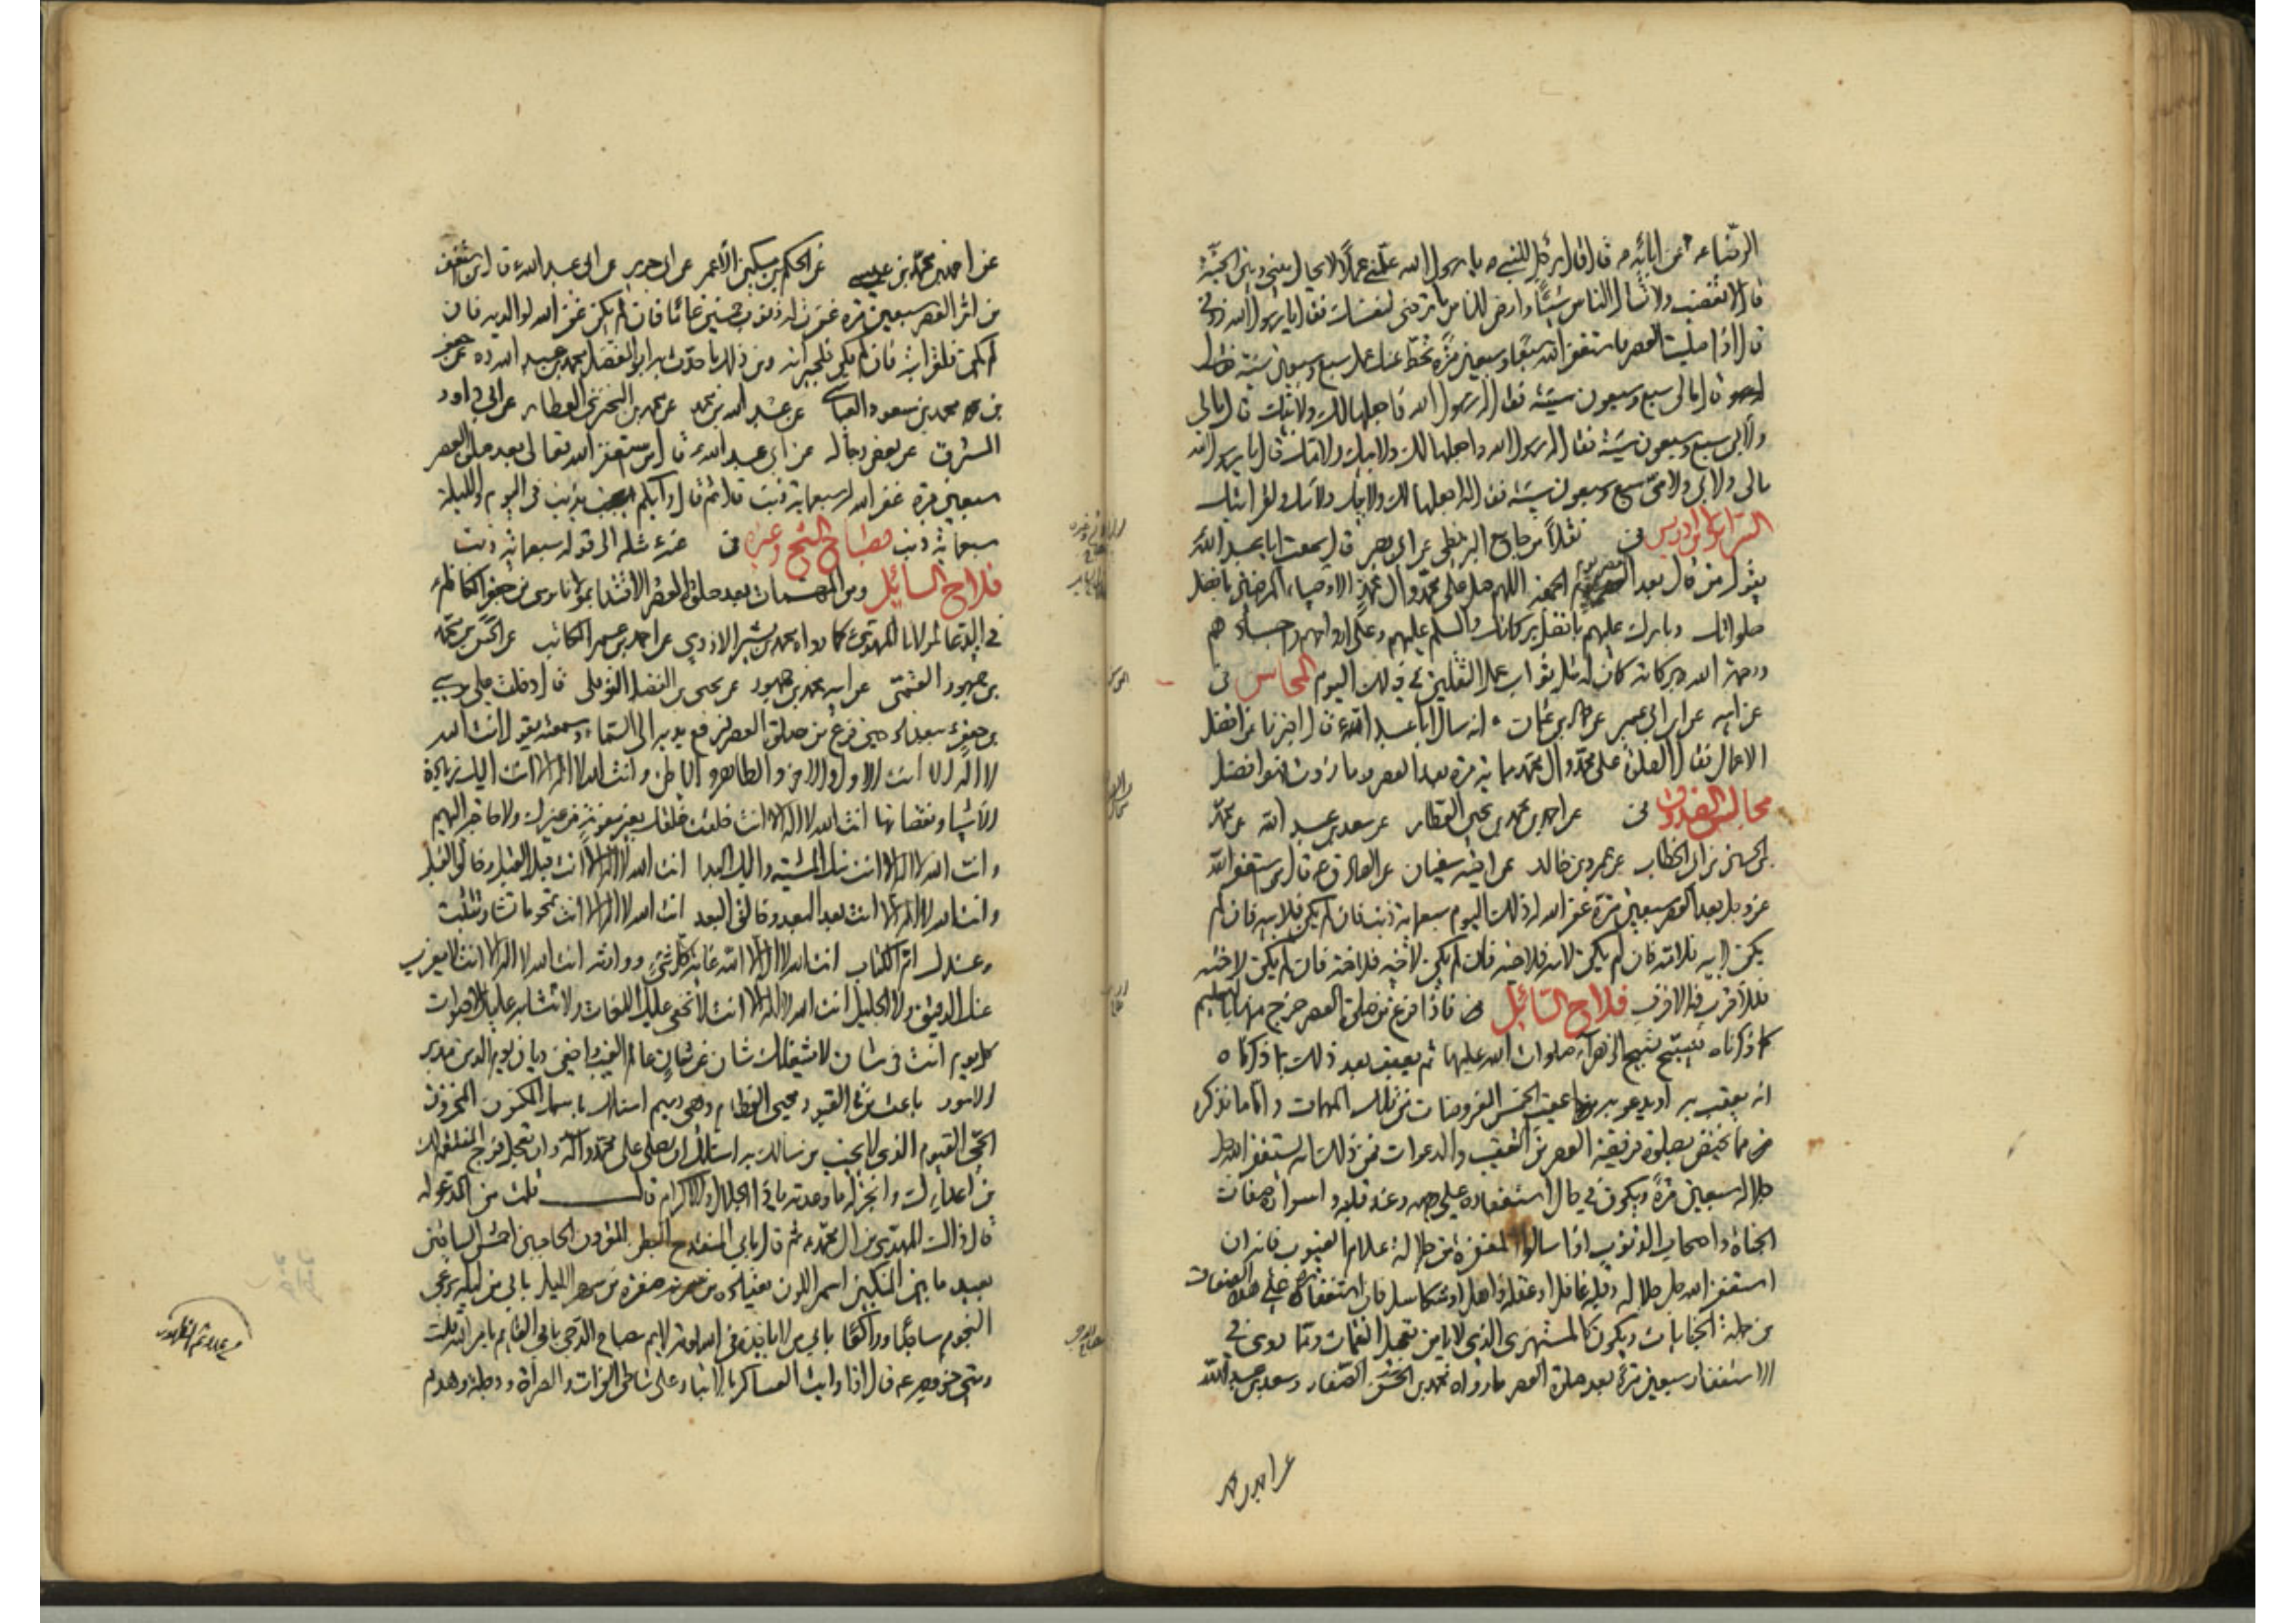 الرضا عه عن ابائه ۴ قال قال رجل للنبي ص يا رسول الله علمني عملا لا يحال بيني وبين الجنة
قال لا تغضب ولا تسأل الناس شيئا وارض للناس ما ترضى لنفسك فقال يا رسول الله زدني
قال اذا صليت العصر فاستغفر الله سبعا وسبعين مرة تحط عنك عمل سبع وسبعين سيئة
قال مالي سبع وسبعون سيئة فقال له رسول الله فاجعلها لك ولابيك قال مالي
ولابي سبع وسبعون سيئة فقال له رسول الله واجعلها لك ولابيك ولامك قال يا رسول الله
مالي ولابي ولامي سبع وسبعون سيئة فقال له اجعلها لك ولابيك ولامك ولقرابتك
السرائر لابن ادريس من نقلا من جامع البزنطي عن ابي بصير قال سمعت ابا عبد الله
يقول من قال بعد العصر يوم الجمعة اللهم صل على محمد وال محمد الاوصياء المرضيين بافضل
صلواتك وبارك عليهم بافضل بركاتك والسلم عليهم وعلى ارواحهم واجسادهم
ورحمة الله وبركاته كان له مثل ثواب عمل الثقلين في ذلك اليوم المحاسن
عن ابيه عن ابن ابي عمير عن انه سأل ابا عبد الله قال اخبرنا عن افضل
الاعمال فقال الصلوة على محمد وال محمد مائة مرة بعد العصر وما زدت فهو افضل
مجالس الصدوق عن احمد بن محمد بن يحيى العطار عن سعد بن عبد الله عن محمد
بن الحسين بن ابي الخطاب عن عمرو بن خالد عن اخيه سفيان عن الصادق عه قال من استغفر الله
عز وجل بعد العصر سبعين مرة غفر الله له ذلك اليوم سبعمائة ذنب فان لم يكن له فلابيه فان لم
يكن لابيه فلامه فان لم يكن لامه فلاخيه فان لم يكن لاخيه فلاخته فان لم يكن لاخته
فللاقرب فالاقرب فلاح السائل فاذا فرغ من صلوة العصر خرج منها بالتسليم
كما ذكرناه بتسبيح الزهراء صلوات الله عليها ثم يعقب بعد ذلك بما ذكرناه
انه يعقب به او يدعو به عقيب الخمس المفروضات من تلك المهمات واما ما نذكر
مما يختص بصلوة فريضة العصر من التعقيب والدعوات فمن ذلك انه يستغفر الله جل
جلاله سبعين مرة ويكون في حال استغفاره على وجهه وعند قلبه صفات
الجناة واصحاب الذنوب اذا سألوا المغفرة من جلالة علام الغيوب فانه ان
استغفر الله جل جلاله وقلبه غافل او عقله ذاهل او متكاسل فان استغفاره على هذه الصفات
من جملة الجنايات ويكون كالمستهزئ الذي لا يامن تعجيل النقمات ومما روى في
الاستغفار سبعين مرة بعد صلوة العصر ما رواه محمد بن الحسن الصفار وسعد بن عبد الله
عن احمد بن محمد
عن احمد بن محمد بن عيسى عن الحكم بن مسكين الاعمى عن ابي جرير عن ابي عبد الله قال من استغفر
من اثر العصر سبعين مرة غفرت له ذنوب خمسين عاما فان لم يكن غفر الله لوالديه فان
لم يكن فلقرابته فان لم يكن فلجيرانه ومن ذلك ما حدث به ابو المفضل محمد بن عبد الله ره عن جعفر
بن محمد بن مسعود العياشي عن عبد الله بن محمد عن محمد بن البختري العطار عن ابي داود
المسترق عن بعض رجاله عن ابي عبد الله قال من استغفر الله تعالى بعد صلوة العصر
سبعين مرة غفر الله له سبعمائة ذنب قال ثم قال وايكم يذنب في اليوم والليلة
سبعمائة ذنب مصباح الشيخ وغيره عنه مثله الى قوله سبعمائة ذنب
فلاح السائل ومن المهمات بعد صلوة العصر الاقتداء بمولانا موسى بن جعفر الكاظم
في الدعاء لمولانا المهدي كما رواه محمد بن بشير الازدي عن احمد بن عمر الكاتب عن الحسن بن محمد
بن جمهور العمي عن ابيه محمد بن جمهور عن يحيى بن الفضل النوفلي قال دخلت على موسى
بن جعفر ببغداد حين فرغ من صلوة العصر فرفع يديه الى السماء وسمعته يقول انت الله
لا اله الا انت الاول والاخر والظاهر والباطن وانت الله لا اله الا انت اليك زيادة
الاشياء ونقصانها انت الله لا اله الا انت خلقت خلقك بغير معونة من غيرك ولا حاجة اليهم
وانت الله لا اله الا انت منك المشية واليك البدا انت الله لا اله الا انت قبل القبل وخالق القبل
وانت الله لا اله الا انت بعد البعد وخالق البعد انت الله لا اله الا انت تمحو ما تشاء وتثبت
وعندك ام الكتاب انت الله لا اله الا انت غاية كل شيء ووارثه انت الله لا اله الا انت لا يعزب
عنك الدقيق ولا الجليل انت الله لا اله الا انت لا تخفى عليك اللغات ولا تتشابه عليك الاصوات
كل يوم انت في شان لا يشغلك شان عن شان عالم الغيب واخفى ديان يوم الدين مدبر
الامور باعث من في القبور محيي العظام وهي رميم اسألك باسمك المكنون المخزون
الحي القيوم الذي لا يخيب من سألك به اسألك ان تصلي على محمد واله وان تعجل فرج المنتقم لك
من اعدائك وانجز له ما وعدته يا ذا الجلال والاكرام قال قلت من المدعو له
قال ذاك المهدي من ال محمد ثم قال بابي المنتدح البطن المقرون الحاجبين احمش الساقين
بعيد ما بين المنكبين اسمر اللون يعتاده من سمرته صفرة من سهر الليل بابي من ليله يرعى
النجوم ساجدا وراكعا بابي من لا ياخذه في الله لومة لائم مصباح الدجى بابي القائم بامر الله قلت
ومتى خروجه قال اذا رايت العساكر بالانبار على شاطئ الفرات والصراة ودجلة وهدم